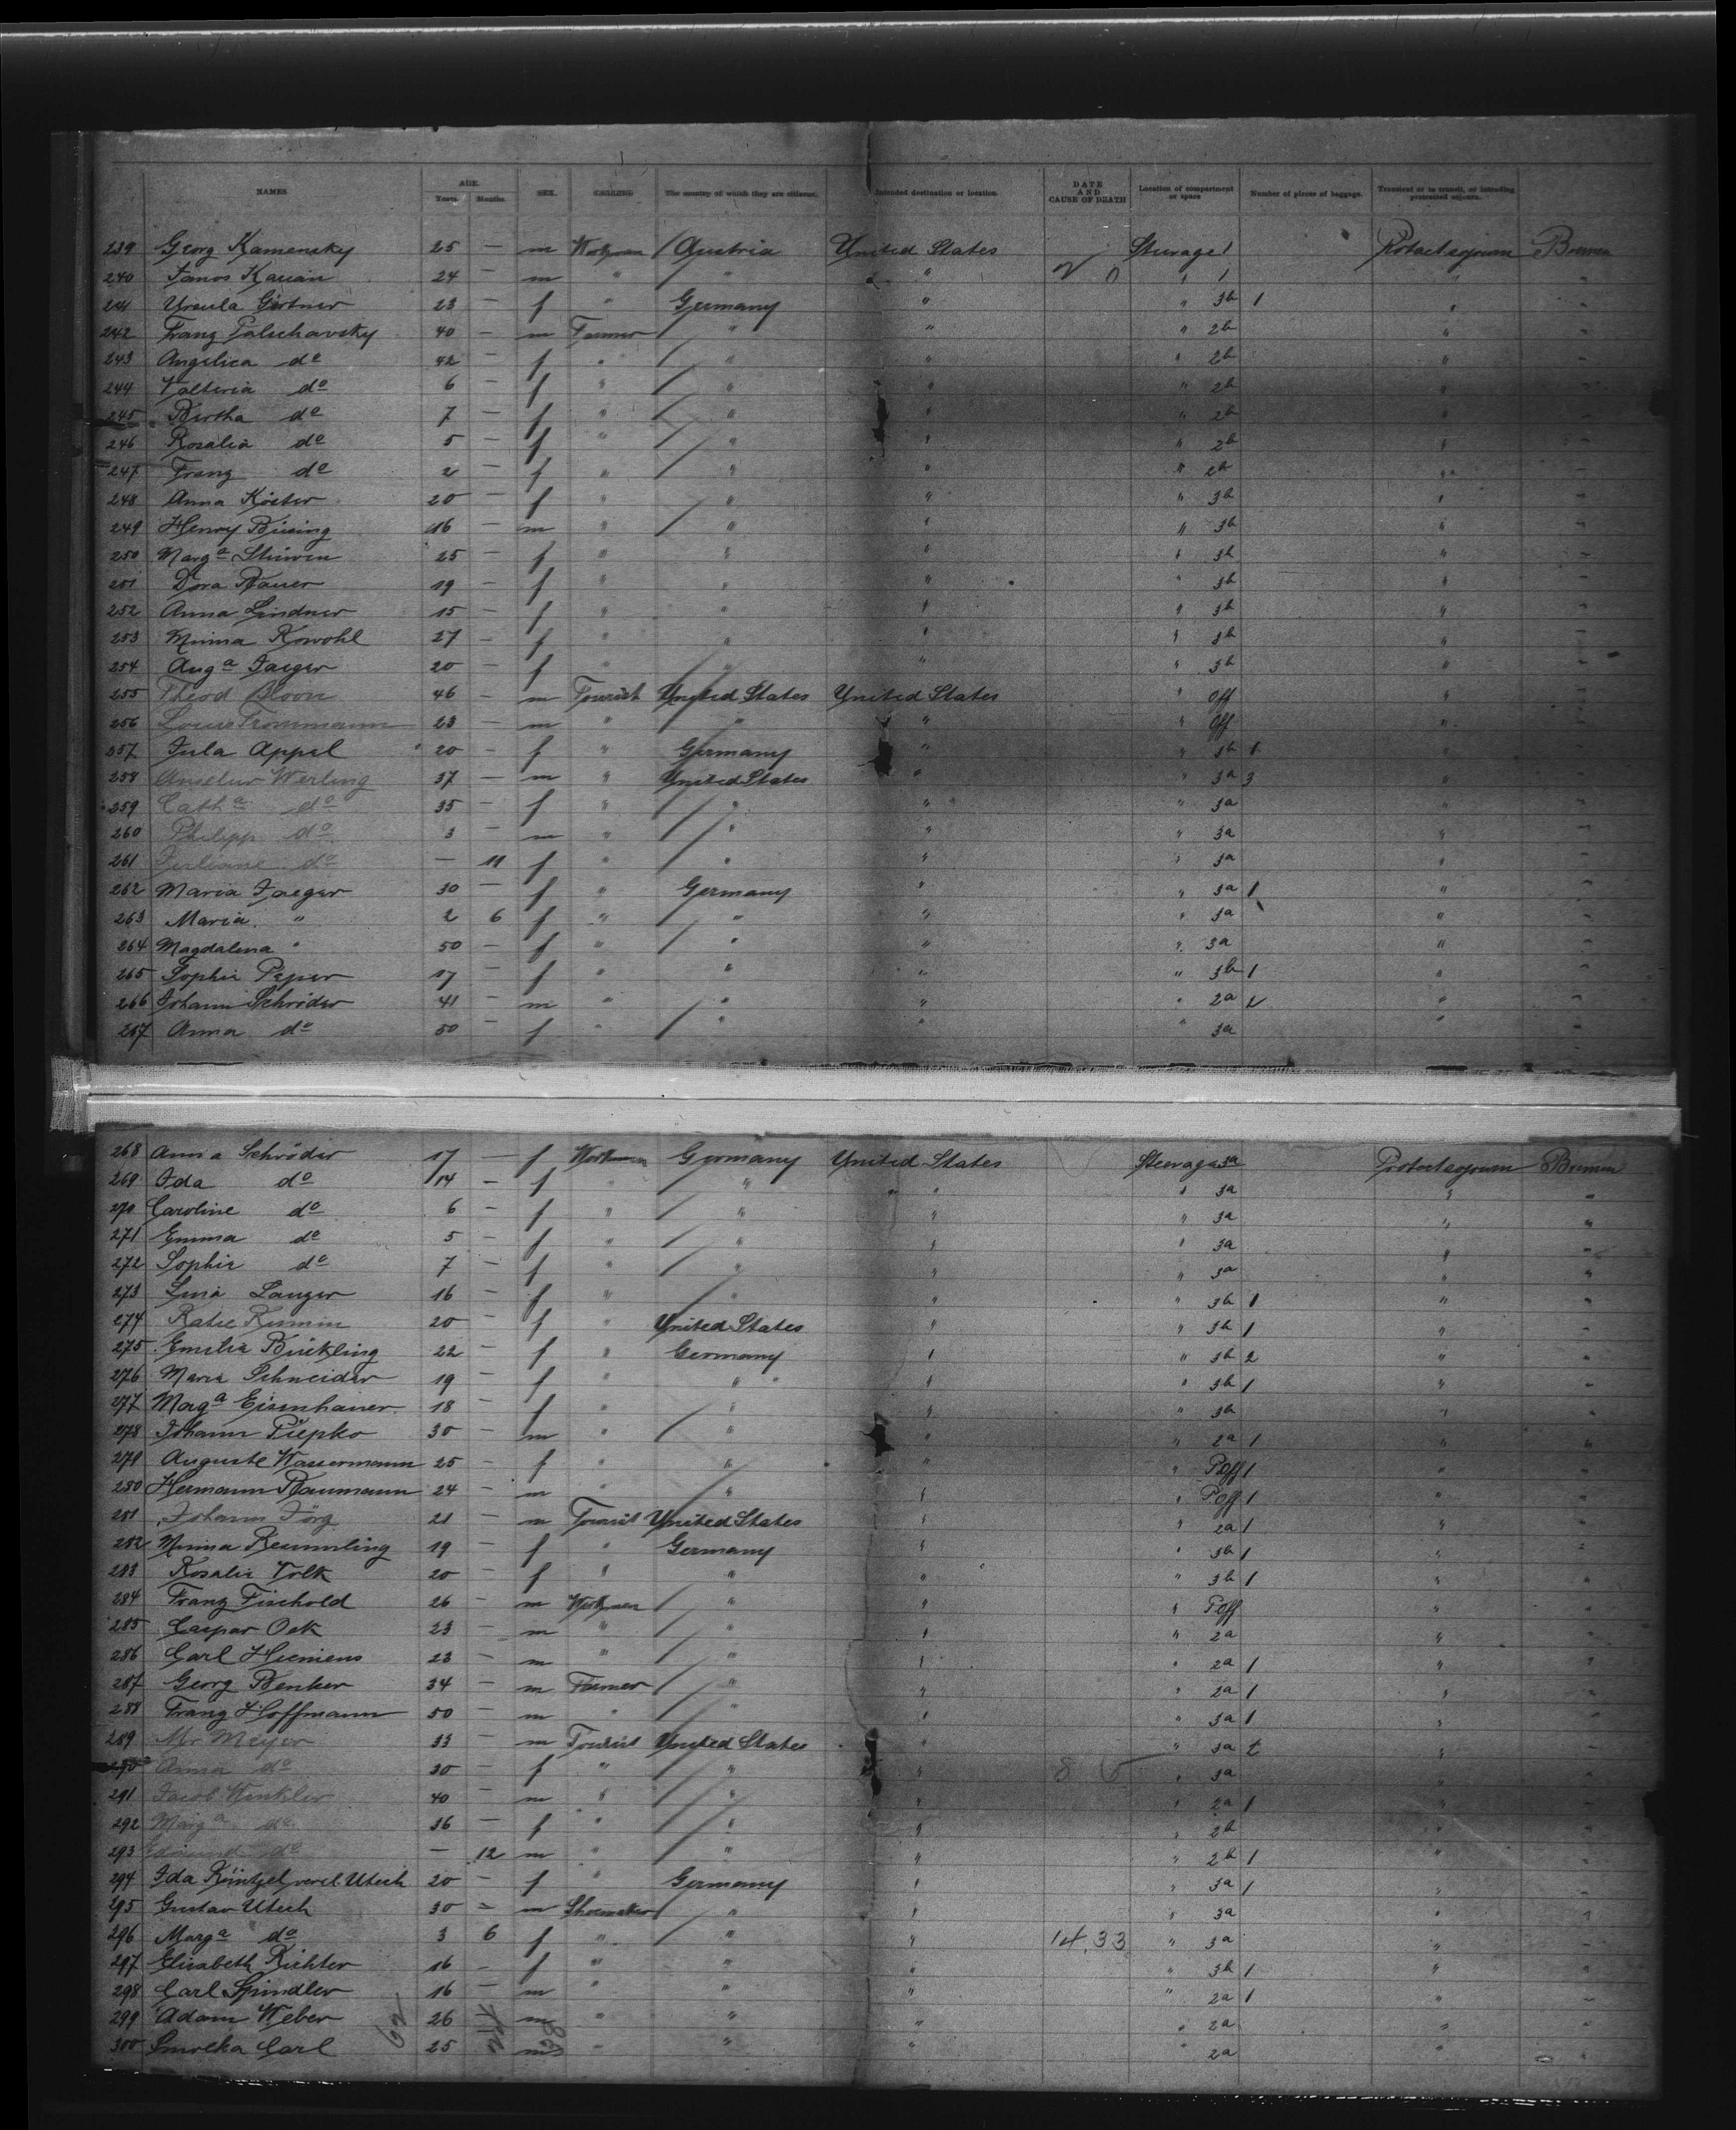 NAMES AGE. Years. Months. SEX. CALLING The country of which they are citizens. Intended destination or location. DATE AND CAUSE OF DEATH Location of compartment or space Number of pieces of baggage. Transient or in transit, or intending protracted sojourn.
239 Georg Kamensky 25 — m Workman Austria United States Steerage 1 Bremen
240 Janos 24 — m " " " " 1 " "
241 Ursula Gürtner 23 — f " Germany " " 3b 1 " "
242 Franz Palschavsky 40 — m Farmer " " " 2b " "
243 Angelica do 42 — f " " " " 2b " "
244 do 6 — f " " " " 2b " "
245 Bertha do 7 — f " " " " 2b " "
246 Rosalia do 5 — f " " " " 2b " "
247 Franz do 2 — f " " " " 2b " "
248 Anna Köster 20 — f " " " " 3b " "
249 Henry Büsing 16 — m " " " " 3b " "
250 Marga Stüwen 25 — f " " " " 3b " "
251 Dora Bauer 19 — f " " " " 3b " "
252 Anna Lindner 15 — f " " " " 3b " "
253 Minna Kowohl 27 — f " " " " 3b " "
254 Auga Jaeger 20 — f " " " " 3b " "
255 Theod Bloon 46 — m Tourist United States United States " Off " "
256 Louis Trommann 23 — m " " " " Off " "
257 Jula Appel 20 — f " Germany " " 3b 1 " "
258 Werling 37 — m " United States " " 3a 3 " "
259 Catha do 35 — f " " " " 3a " "
260 Philipp do 3 — m " " " " 3a " "
261 Juliane do — 11 f " " " " 3a " "
262 Maria Jaeger 30 — f " Germany " " 3a 1 " "
263 Maria " 2 6 f " " " " 3a " "
264 Magdalena " 50 — f " " " " 3a " "
265 Sophie Peper 17 — f " " " " 3b 1 " "
266 Johann Schröder 41 — m " " " " 2a 2 " "
267 Anna do 50 — f " " " " 3a " "
268 Anna Schröder 17 — f Workman Germany United States Steerage 3a Bremen
269 Ida do 14 — f " " " " 3a " "
270 Caroline do 6 — f " " " " 3a " "
271 Emma do 5 — f " " " " 3a " "
272 Sophie do 7 — f " " " " 3a " "
273 Lina Langer 16 — f " " " " 3b 1 " "
274 Katie 20 — f " United States " " 3b 1 " "
275 Emilie Bückling 22 — f " Germany " " 3b 2 " "
276 Marie Schneider 19 — f " " " " 3b 1 " "
277 Marga Eisenhauer 18 — f " " " " 3b " "
278 Johann Piepko 30 — m " " " " 2a 1 " "
279 Auguste Wassermann 25 — f " " " " P.Off 1 " "
280 Hermann Baumann 24 — m " " " " P.Off 1 " "
281 Johann Jörg 21 — m Tourist United States " " 2a 1 " "
282 Minna Remmling 19 — f " Germany " " 3b 1 " "
283 Rosalie Volk 20 — f " " " " 3b 1 " "
284 Franz Fischold 26 — m Workman " " " P.Off " "
285 Caspar Ock 23 — m " " " " 2a " "
286 Carl Hiemens 23 — m " " " " 2a 1 " "
287 Georg Benker 34 — m Farmer " " " 2a 1 " "
288 Franz Hoffmann 50 — m " " " " 3a 1 " "
289 Mr Meyer 33 — m Tourist United States " " 3a " "
290 Anna do 30 — f " " " " 3a " "
291 Jacob Winkler 40 — m " " " " 2a 1 " "
292 Marga do 36 — f " " " " 2b " "
293 Edmund do — 12 m " " " " 2b 1 " "
294 Ida Küntzel verel. Utech 20 — f " Germany " " 3a 1 " "
295 Gustav Utech 30 — m Shoemaker " " " 3a " "
296 Marga do 3 6 f " " " 14.33 " 3a " "
297 Elisabeth Richter 16 — f " " " " 3b 1 " "
298 Carl Spindler 16 — m " " " " 2a 1 " "
299 Adam Weber 26 — m " " " " 2a " "
300 Smolka Carl 25 — m " " " " 2a " "